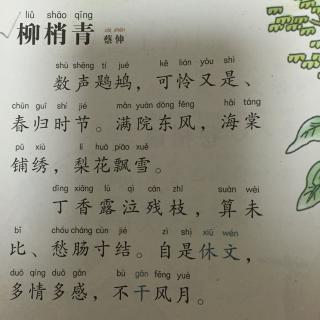 liǔ shāo qīng
柳梢青 cài shēn 蔡伸
shù shēng tí jué kě lián yòu shì
数声鶗鴂，可怜又是、
chūn guī shí jié mǎn yuàn dōng fēng hǎi táng
春归时节。满院东风，海棠
pū xiù lí huā piāo xuě
铺绣，梨花飘雪。
dīng xiāng lù qì cán zhī suàn wèi
丁香露泣残枝，算未
bǐ chóu cháng cùn jié zì shì xiū wén
比、愁肠寸结。自是休文，
duō qíng duō gǎn bù gān fēng yuè
多情多感，不干风月。